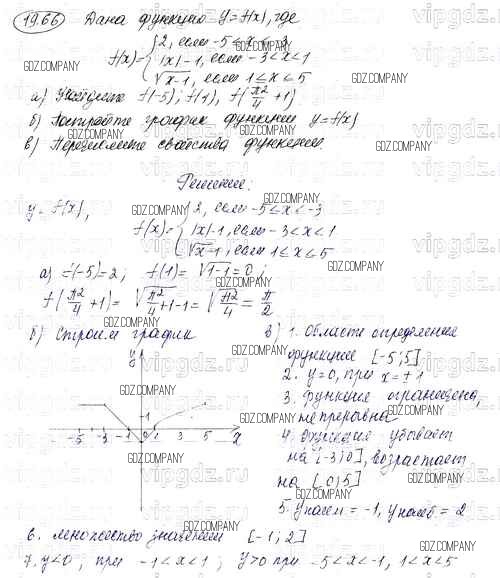 19.66 Дана функция y=f(x), где
f(x)= { 2, если -5≤x≤-3
|x|-1, если -3<x<1
√x-1, если 1≤x≤5
а) f(-5); f(1), f(π²/4+1)
б) Постройте график функции y=f(x)
в) Перечислите свойства функции.
Решение:
y=f(x),
f(x)= { 2, если -5≤x≤-3
|x|-1, если -3<x<1
√x-1, если 1≤x≤5
а) f(-5)=2; f(1)=√1-1=0;
f(π²/4+1)=√π²/4+1-1=√π²/4=π/2
б) Строим график
y
1
-5 -3 -1 0 1 5 x
в) 1. Области определения
функции [-5;5]
2. y=0, при x=±1
3. Функция ограничена,
непрерывна
4. Функция убывает
на [-3;0], возрастает
на [0;5]
5. yнаим=-1, yнаиб=2
6. множество значений [-1;2]
7. y<0; при -1<x<1; y>0 при -5<x<-1, 1<x≤5
GDZ.COMPANY
vipgdz.ru